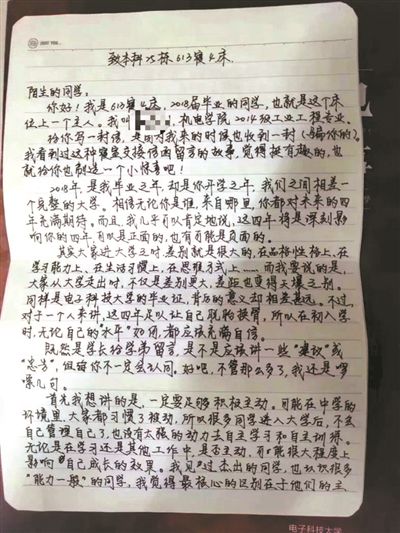 致本科25栋613寝4床
陌生的同学：
你好！我是613寝4床，2018届毕业的同学，也就是这个床
位上一个主人。我叫 机电学院2014级工业工程专业，
给你写一封信，是因为我来的时候也收到一封（骗你的）。
我看到过这种寝室交接信函留言的故事，觉得挺有趣的，也
就给你也制造一个小惊喜吧！
2018年，是我毕业之年，却是你开学之年，我们之间相差一
个完整的大学。相信无论你是谁，来自哪里，你都对未来的四
年充满期待。而且，我几乎可以肯定地说，这四年将是深刻影
响你的四年，可以是正面的，也有可能是负面的。
其实大家进大学之时，差别就是很大的，在品格性格上，在
学习能力上，在生活习惯上，在思维方式上……而我要说的是，
大家从大学走出时，不仅是差别更大，差距也更得天壤之别。
同样是电子科技大学的毕业证，背后的意义却相差甚远。不过，
对于一个人来讲，这四年足以让自己脱胎换骨，所以在初入学
时，无论自己的"水平"如何，都应该充满自信。
既然是学长给学弟留言，是不是应该讲一些"建议"或
"忠言"，但给你不一定会认同。好吧，不管那么多了，我还是啰
嗦几句。
首先我想讲的是，一定要足够积极主动。可能在中学的
环境里，大家都习惯了被动，所以很多同学进入大学后，不会
自己管理自己了，也没有太强的动力去自主学习和自主训练。
无论是在学习还是其他工作中，是否主动，可能很大程度上
影响自己成长的效果。我见过杰出的同学，也认识很多
"能力一般"的同学，我觉得最核心的区别在于他们的主
电子科技大学